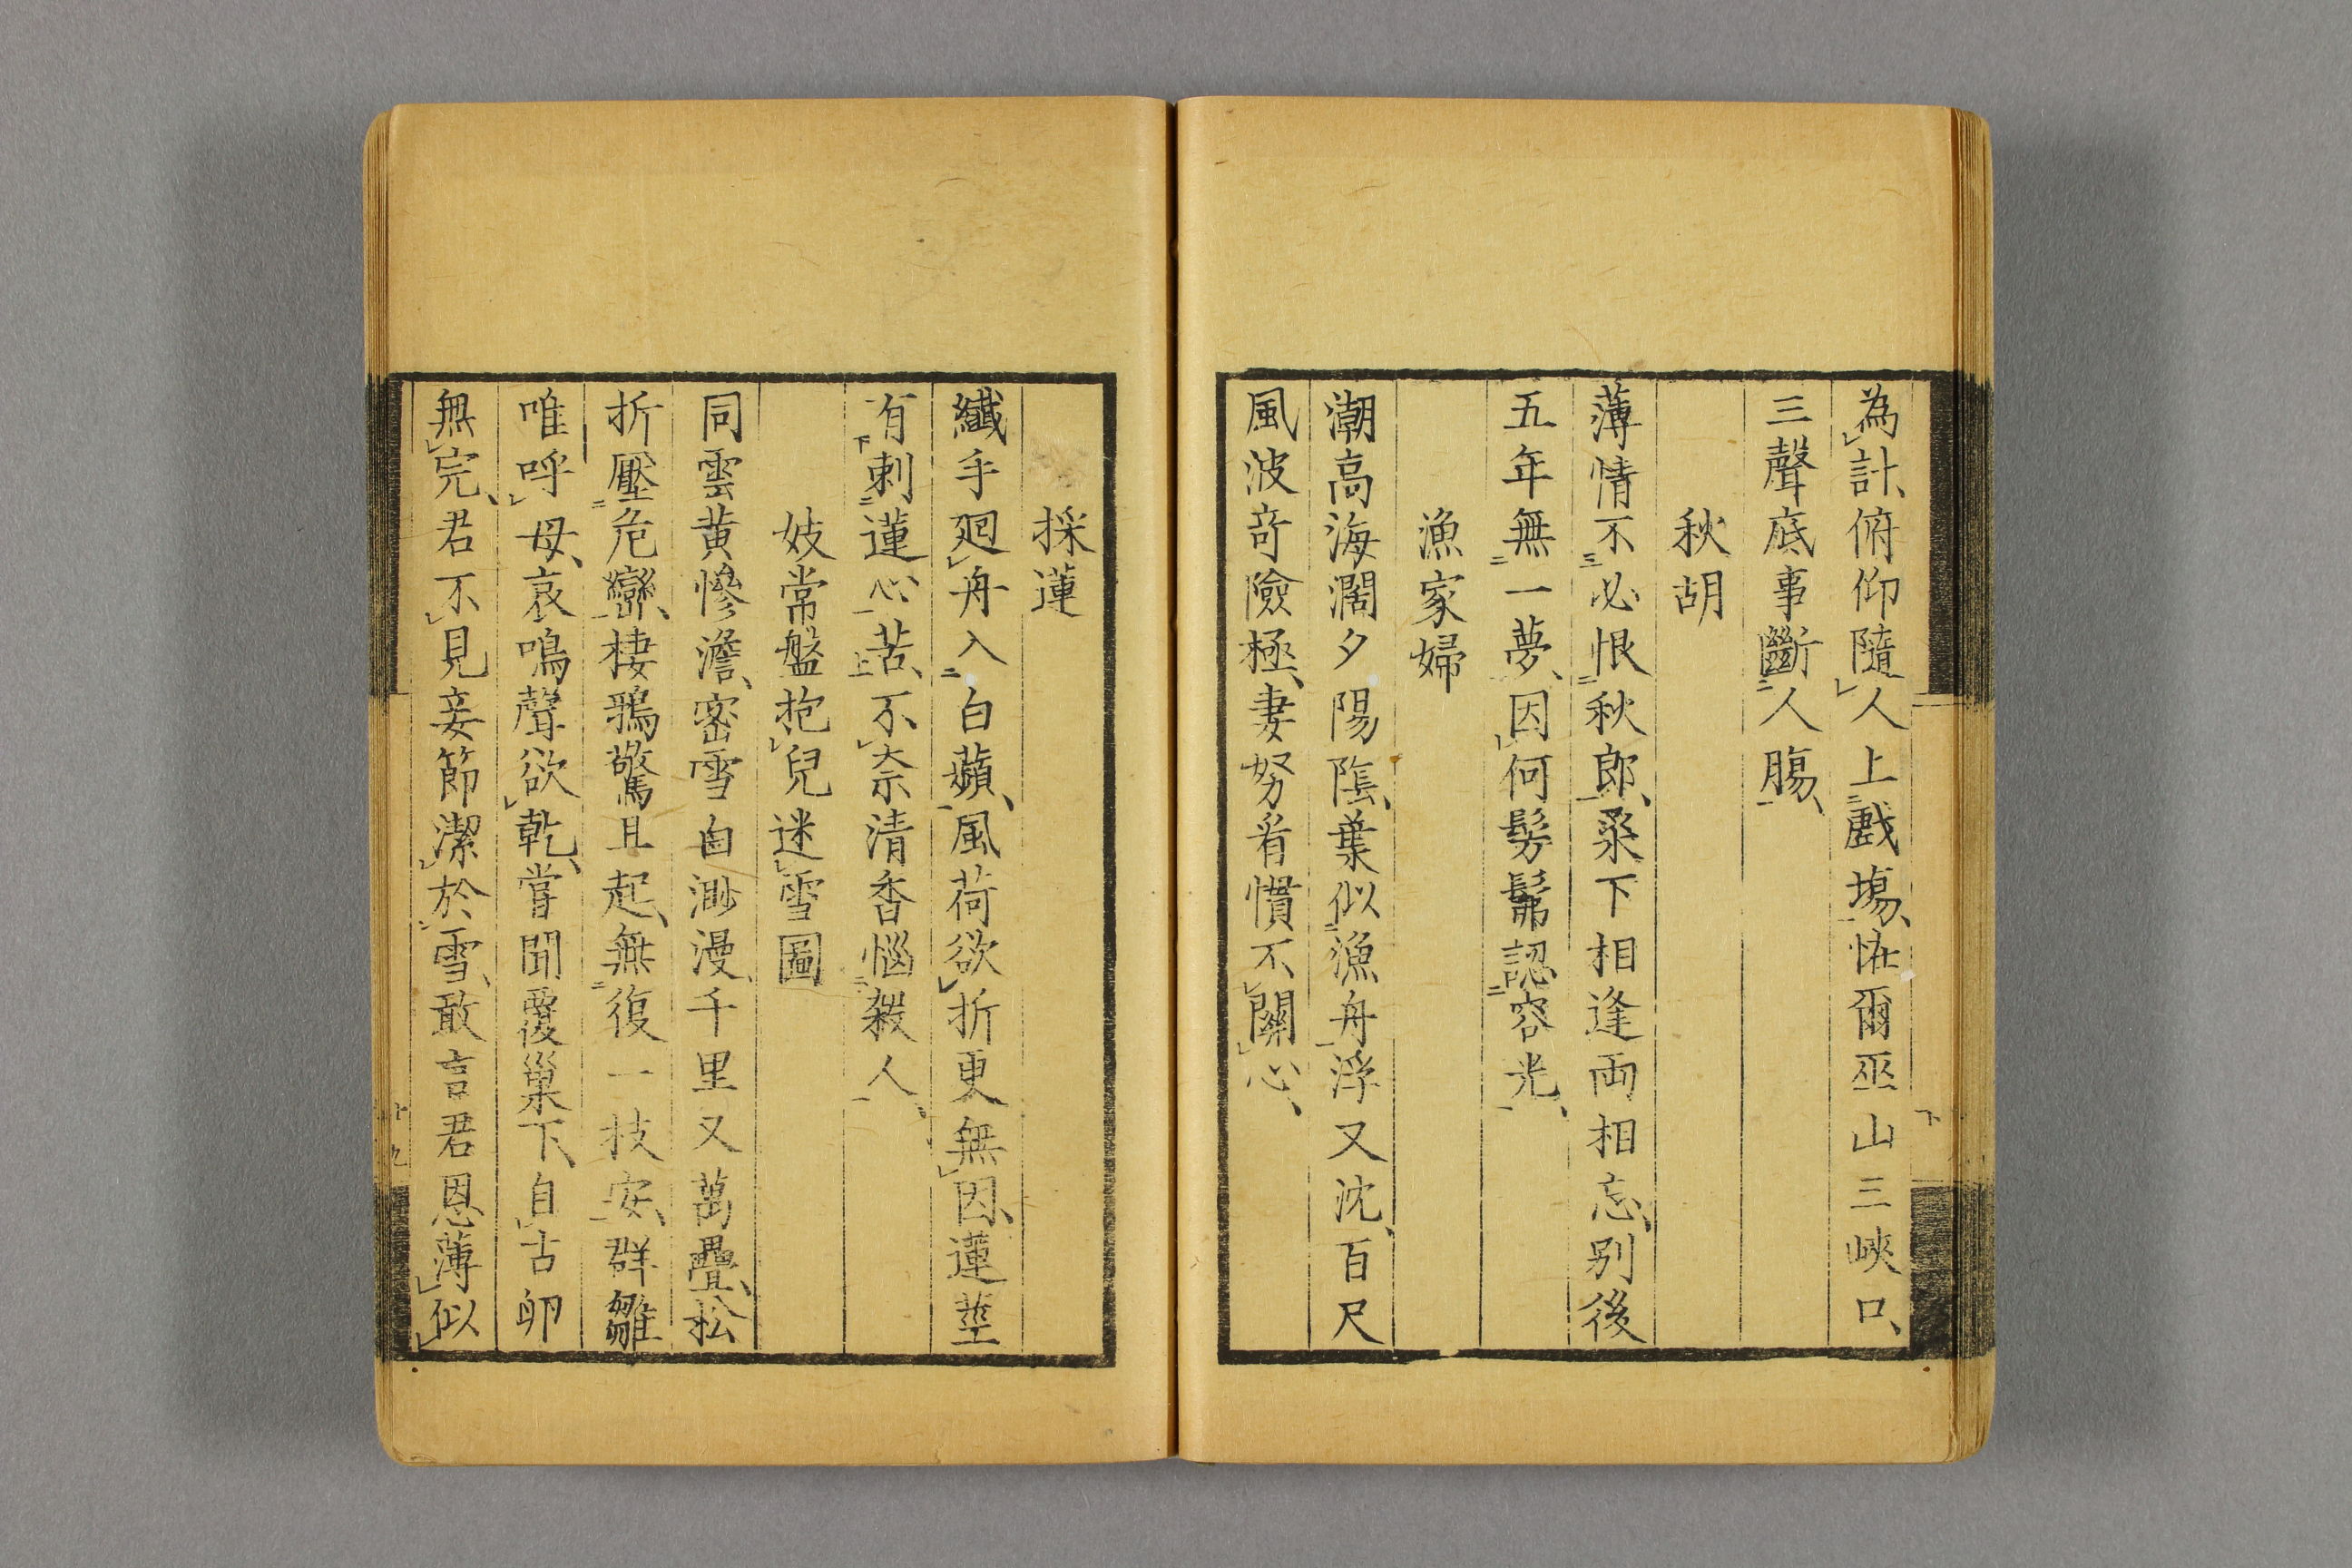 為計俯仰隨人上戲場恠爾巫山三峽口
三聲底事斷人腸
秋胡
薄情不必恨秋郎桑下相逢両相忘別後
五年無一夢因何髣髴認容光
漁家婦
潮高海濶夕陽蔭葉似漁舟浮又沈百尺
風波奇險極妻孥看慣不關心
採蓮
纖手廻舟入白蘋風荷欲折更無因蓮莖
有刺蓮心苦不奈清香惱殺人
妓常盤抱兒迷雪圖
同雲黄慘澹密雪白渺漫千里又萬疊松
折壓危巒棲鴉驚且起無復一技安群雛
唯呼母哀鳴聲欲乾嘗聞覆巢下自古卵
無完君不見妾節潔於雪敢言君恩薄似
下
十九